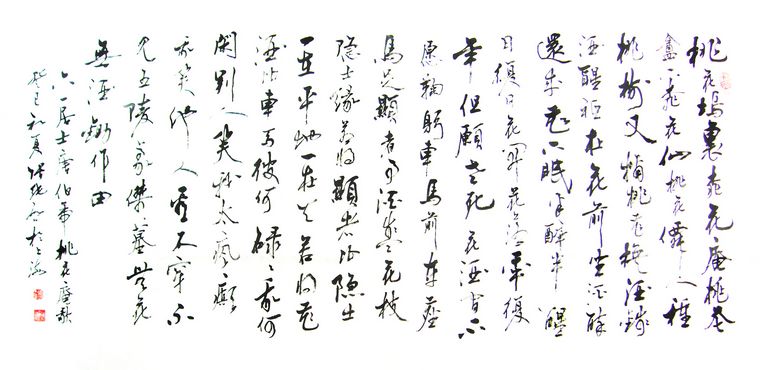 桃花塢裏桃花庵桃花
盦下桃花仙桃花僊人種
桃樹又摘桃花換酒錢
酒醒祗在花前坐酒醉
還來花下眠半醉半醒
日復日花開花落年復
年但願老死花酒間不
愿鞠躬車馬前車塵
馬足顯者事酒盞花枝
隐士緣若將顯者比隐士
一在平地一在天若將花
酒比車馬彼何碌々我何
閑別人笑我太瘋癲
我笑他人看不穿不
見五陵豪傑墓無花
無酒鋤作田
六一居士唐伯虎桃花庵歌
癸巳初夏於上海